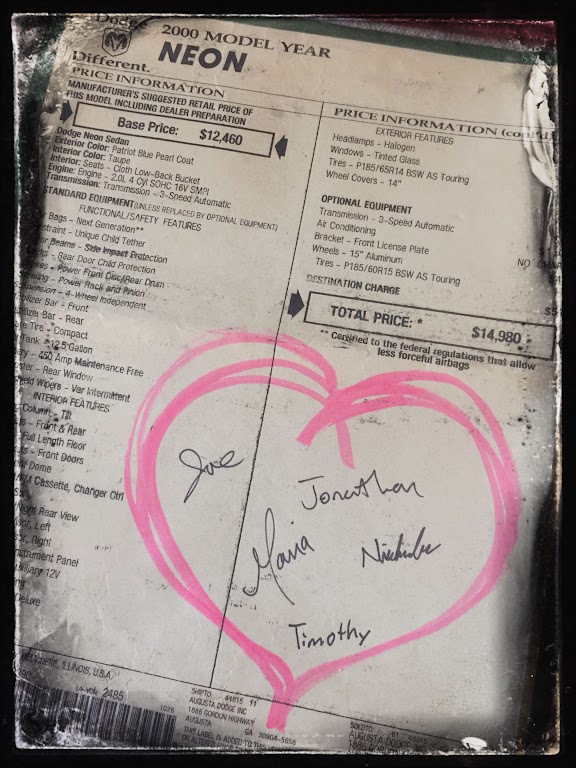 Dodge
Different.
2000 MODEL YEAR
NEON
PRICE INFORMATION
MANUFACTURER'S SUGGESTED RETAIL PRICE OF
THIS MODEL INCLUDING DEALER PREPARATION
Base Price: $12,460
Dodge Neon Sedan
Exterior Color: Patriot Blue Pearl Coat
Interior Color: Taupe
Interior: Seats - Cloth Low-Back Bucket
Engine: Engine - 2.0L 4 Cyl SOHC 16V SMPI
Transmission: Transmission - 3-Speed Automatic
STANDARD EQUIPMENT (UNLESS REPLACED BY OPTIONAL EQUIPMENT)
FUNCTIONAL/SAFETY FEATURES
Bags - Next Generation**
- Unique Child Tether
Beams - Side Impact Protection
- Rear Door Child Protection
- Power Front Disc/Rear Drum
- Power Rack and Pinion
- 4-Wheel Independent
Bar - Front
Bar - Rear
Tire - Compact
- 12.5 Gallon
- 450 Amp Maintenance Free
- Rear Window
Wipers - Var Intermittent
INTERIOR FEATURES
Column - Tilt
- Front & Rear
- Full Length Floor
- Front Doors
Dome
Cassette, Changer Ctrl
Rear View
Left
Right
Panel
12V
PRICE INFORMATION (cont'd)
EXTERIOR FEATURES
Headlamps - Halogen
Windows - Tinted Glass
Tires - P185/65R14 BSW AS Touring
Wheel Covers - 14"
OPTIONAL EQUIPMENT
Transmission - 3-Speed Automatic
Air Conditioning
Bracket - Front License Plate
Wheels - 15" Aluminum
Tires - P185/60R15 BSW AS Touring
NO
DESTINATION CHARGE
TOTAL PRICE: * $14,980
** Certified to the federal regulations that allow
less forceful airbags
Joe
Jonathan
Maria
Nicholas
Timothy
ILLINOIS, U.S.A.
2485
SHIPTO: 44615 11
AUGUSTA DODGE INC
1886 GORDON HIGHWAY
AUGUSTA GA 30904-5658
THIS LABEL IS ADDED TO THIS
SOLDTO: 61 44615
AUGUSTA DODGE INC